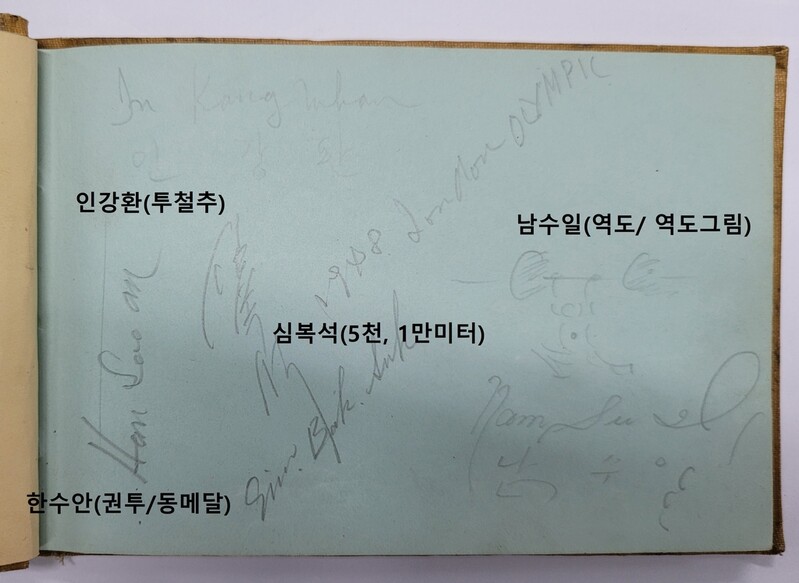 In Kang Whan
인 강 환
인강환(투철추)
1948. London OLYMPIC
남수일(역도/ 역도그림)
심복석(5천, 1만미터)
Sim. Bok. Suk
Han Soo an
Nam Su il
남 수 일
한수안(권투/동메달)